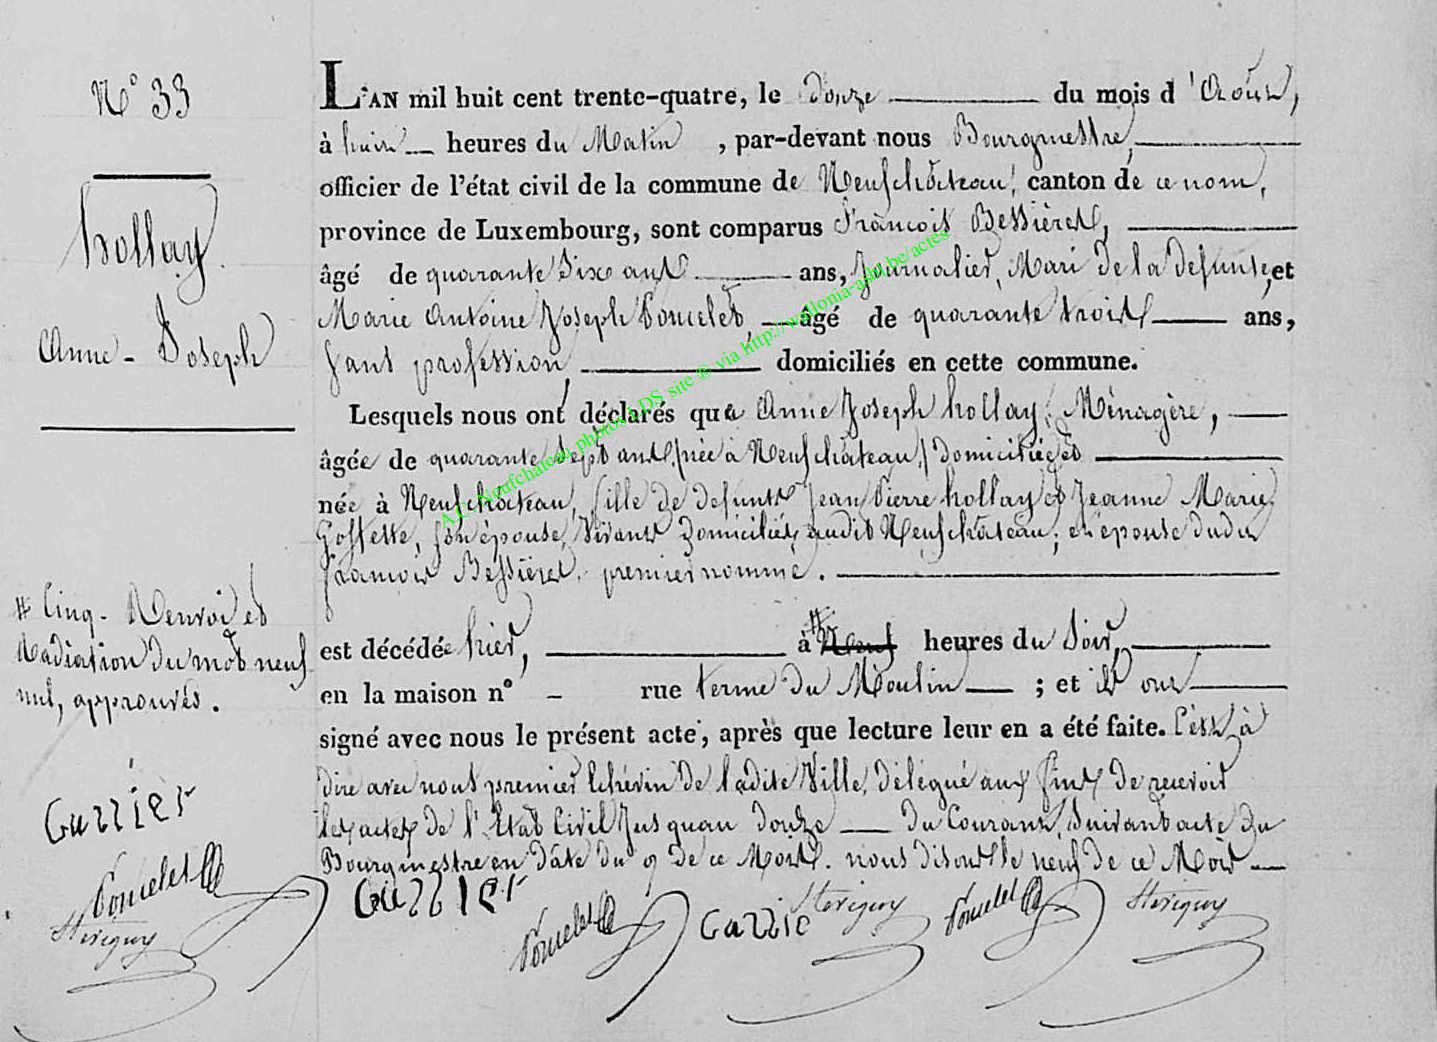 N° 33
hollay
Anne - Joseph
L'AN mil huit cent trente-quatre, le douze du mois d'Août,
à huit heures du Matin, par-devant nous Bourgmestre,
officier de l'état civil de la commune de Neufchâteau, canton de ce nom,
province de Luxembourg, sont comparus François Bessières,
âgé de quarante Six ans ans, Journalier, Mari de la défunte, et
Marie Antoine Joseph Poncelet, âgé de quarante trois ans,
Sans profession, domiciliés en cette commune.
Lesquels nous ont déclarés que Anne Joseph hollay, Ménagère,
âgée de quarante Sept ans, née à Neufchâteau, domiciliée et
née à Neufchâteau, fille de defunts Jean Pierre hollay et Jeanne Marie
Gossette, son épouse, vivants Domiciliés audit Neufchâteau; et épouse dudit
François Bessières premier nommé.
est décédée hier, à # Neuf heures du Soir,
en la maison n° - rue terme du Moulin ; et ils ont
signé avec nous le présent acte, après que lecture leur en a été faite. C'est à
dire avec nous premier Echévin de ladite Ville, délégué aux fins de recevoir
les actes de l'Etat Civil Jusqu'au douze du Courant, Suivant acte du
Bourgmestre en date du 9 de ce Mois. nous disons le neuf de ce Mois
# Cinq. Renvoi et
Radiation du mot neuf
nul, approuvés.
Poncelet
Poncelet
Poncelet
A.C. Neufchateau photos LDS site ® via http://wallonia-asbl.be/actes